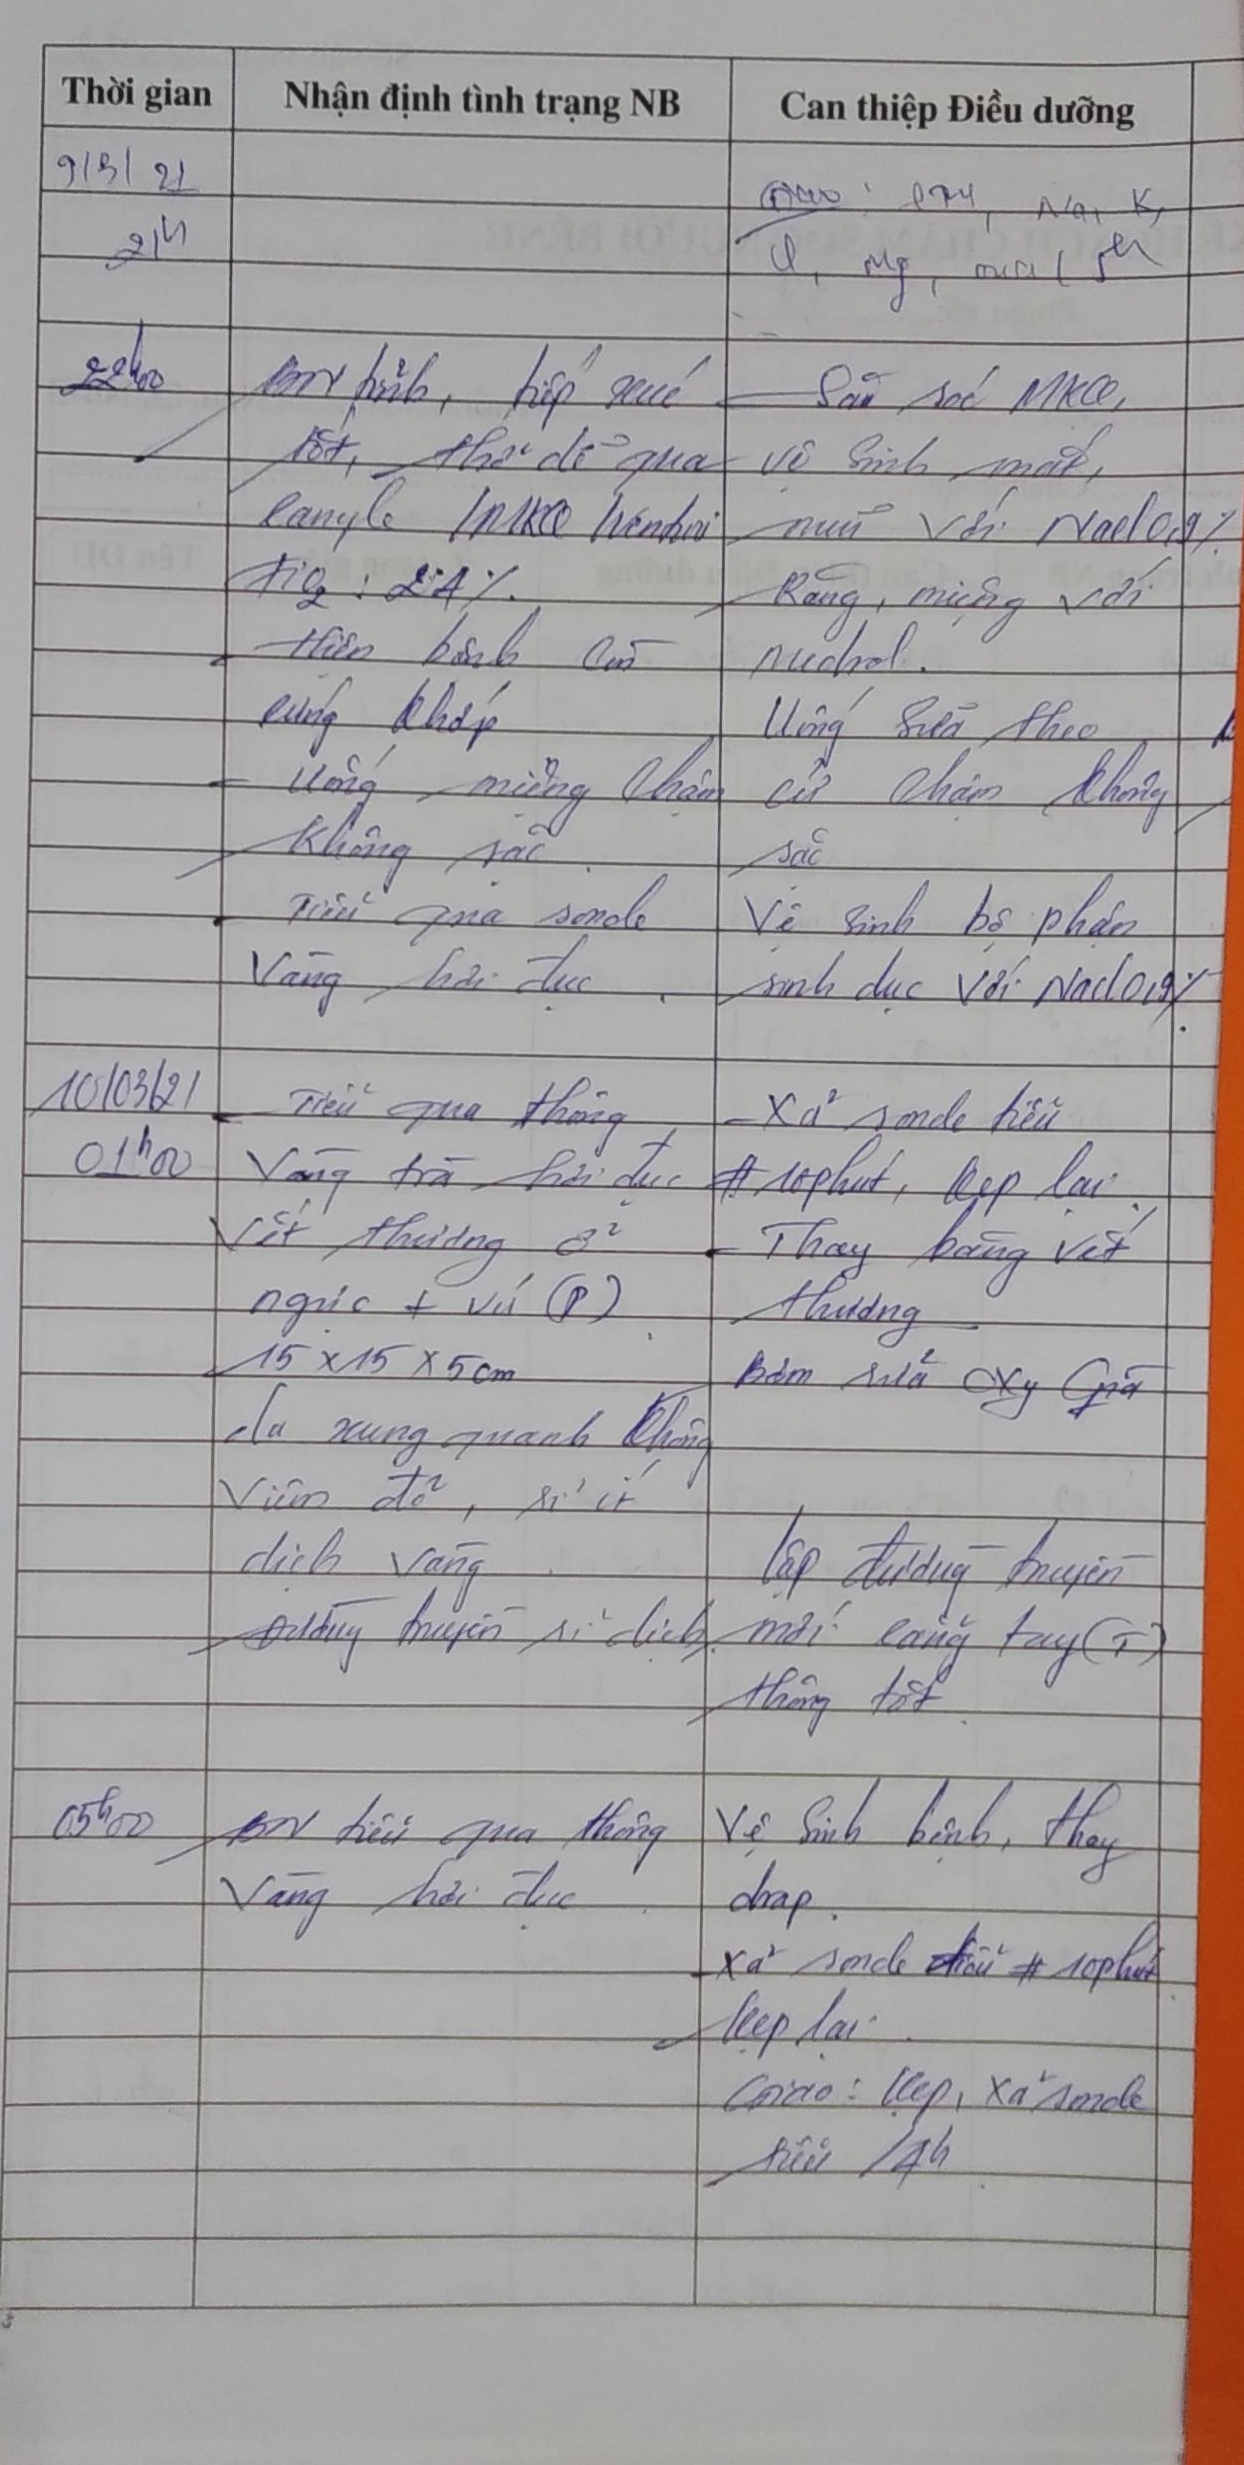 Thời gian
Nhận định tình trạng NB
Can thiệp Điều dưỡng
9/3/21
21h
Na, K,
Cl, Mg,
22h00
BN tỉnh, tiếp xúc
tốt, thở dễ qua
canyle MKQ
FiO2: 24%.
Hiện bệnh còn
cứng khớp
- Uống miệng chậm
không sặc.
- Tiểu qua sonde
Vàng hơi đục.
- Săn sóc MKQ,
vệ sinh mắt,
mũi với NaCl 0,9%
Răng, miệng với
Uống sữa theo
cử chậm không
sặc
Vệ sinh bộ phận
sinh dục với NaCl 0,9%.
10/03/21
01h00
- Tiểu qua thông
Vàng trà hơi đục
Vết thương ở
ngực + vú (P)
15 x 15 x 5cm
da xung quanh không
viêm đỏ, rỉ ít
dịch vàng.
Đường truyền rỉ dịch.
- Xả sonde tiểu
# 10 phút, kẹp lại.
- Thay băng vết
thương
Bơm rửa oxy Già
lập đường truyền
mới cẳng tay (T)
thông tốt.
05h00
BN tiểu qua thông
Vàng hơi đục.
Vệ sinh bệnh, thay
drap.
- Xả sonde tiểu # 10 phút
kẹp lại.
Giao: kẹp, xả sonde
tiểu /4h